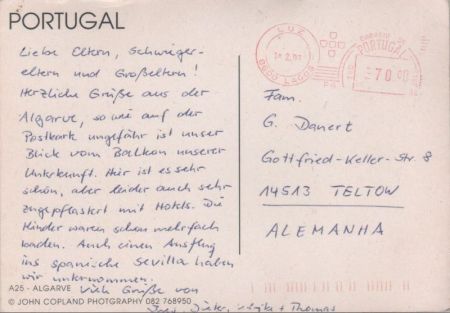 PORTUGAL
Liebe Eltern, Schwieger-
eltern und Großeltern!
Herzliche Grüße aus der
Algarve, so wie auf der
Postkarte ungefähr ist unser
Blick vom Balkon unserer
Unterkunft. Hier ist es sehr
schön, aber leider auch sehr
zugepflastert mit Hotels. Die
Kinder waren schon mehrfach
baden. Auch einen Ausflug
ins spanische Sevilla haben
wir unternommen.
Viele Grüße von
+ Thomas
A25 - ALGARVE
© JOHN COPLAND PHOTOGRAPHY 082 768950
LUZ
PORTUGAL
70
Fam.
G. Danert
Gottfried-Keller-Str. 8
14513 TELTOW
ALEMANHA